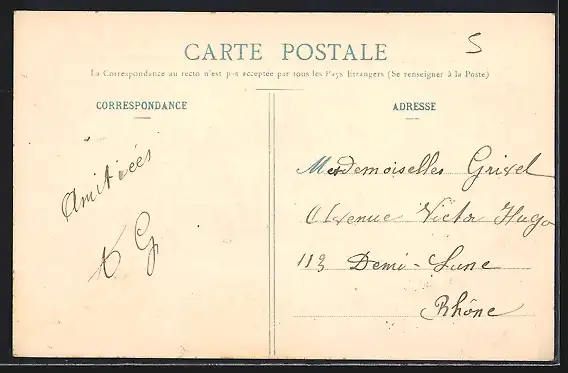 5
CARTE POSTALE
La Correspondance au recto n'est pas acceptée par tous les Pays Etrangers (Se renseigner à la Poste)
CORRESPONDANCE
Amitiées
A G
ADRESSE
Mesdemoiselles Grivel
Avenue Victor Hugo
113 Demi-Lune
Rhône